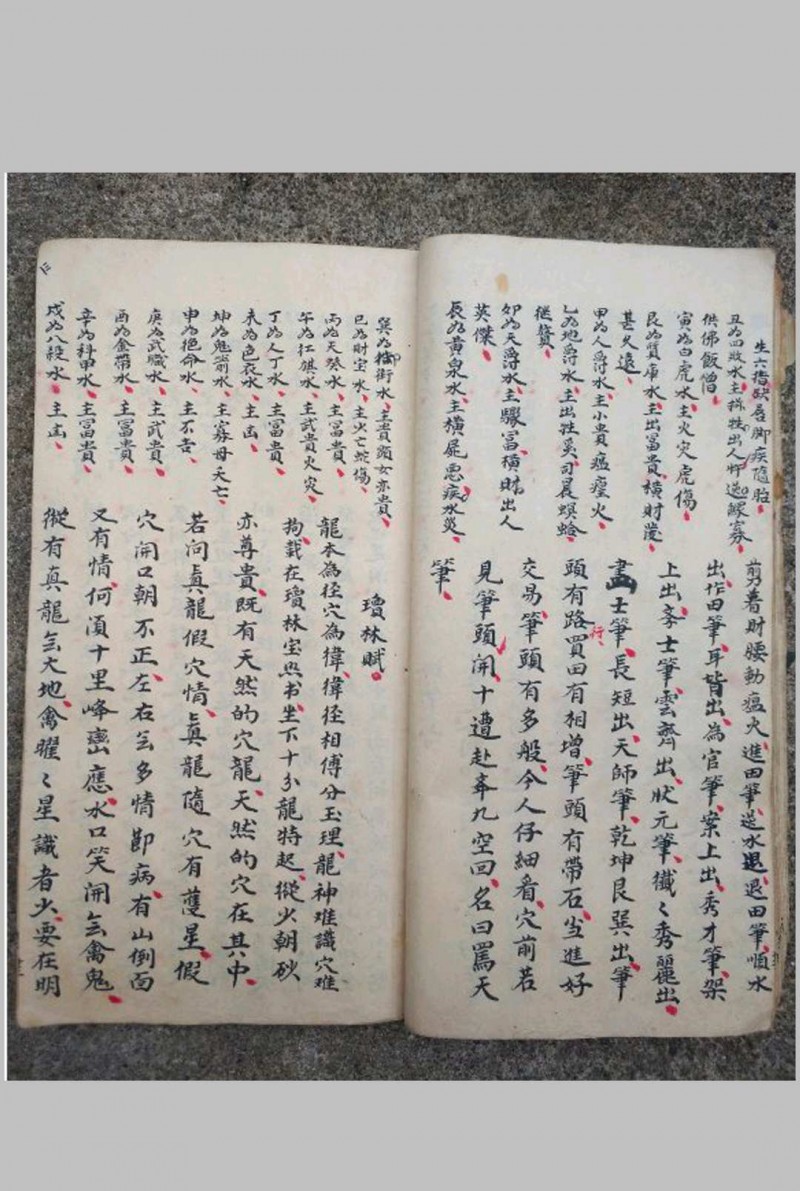 生六指缺唇脚疾隨胎
丑為四敗水主 出人 逃鰥寡
供佛飯僧
寅為白虎水主火灾虎傷
艮為質庫水主出冨貴橫財發
甚火遠
甲為人爵水主小貴瘟𤺥火
乙為地爵水主出 奚司晨螟蛉
継贅
卯為天爵水主驟冨橫財出人
英傑
辰為黄泉水主橫屍悪疾水災
剪着財腰動瘟火進田筆逆水退退田筆順水
出作田筆耳皆出為官筆案上出秀才筆架
上出 士筆雲齊出狀元筆纖〻秀麗出
畫士筆長短出天師筆乾坤艮巽出筆
頭有路買田有相增筆頭有帶石当進好
行
交易筆頭有多般今人仔細看穴前若
見筆頭開十遭赴 九空回名曰罵天
筆
巽為 街水主貴顕女亦貴
巳為財宝水主火亡蛇傷
丙為天癸水主冨貴
午為紅旗水主武貴火灾
丁為人丁水主冨貴
未為色衣水主凶
坤為鬼箭水主寡母夭亡
申為绝命水主不吉
庚為武職水主武貴
酉為金帶水主冨貴
辛為科甲水主冨貴
戌為八殺水主凶
瓊林賦
龍本為径穴為煒煒径相傅分玉理龍神难識穴难
拘载在瓊林宝照书坐下十分龍特起從火朝砂
亦尊貴既有天然的穴龍天然的穴在其中
若问眞龍假穴情眞龍隨穴有護星假
穴開口朝不正左右 多情即病有山倒面
又有情何湏十里峰巒應水口笑開 禽鬼
從有真龍 大地禽曜〻星識者火要在明